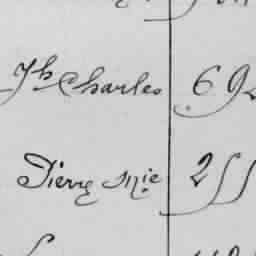 Jh Charles 692
Pierre Mie 255